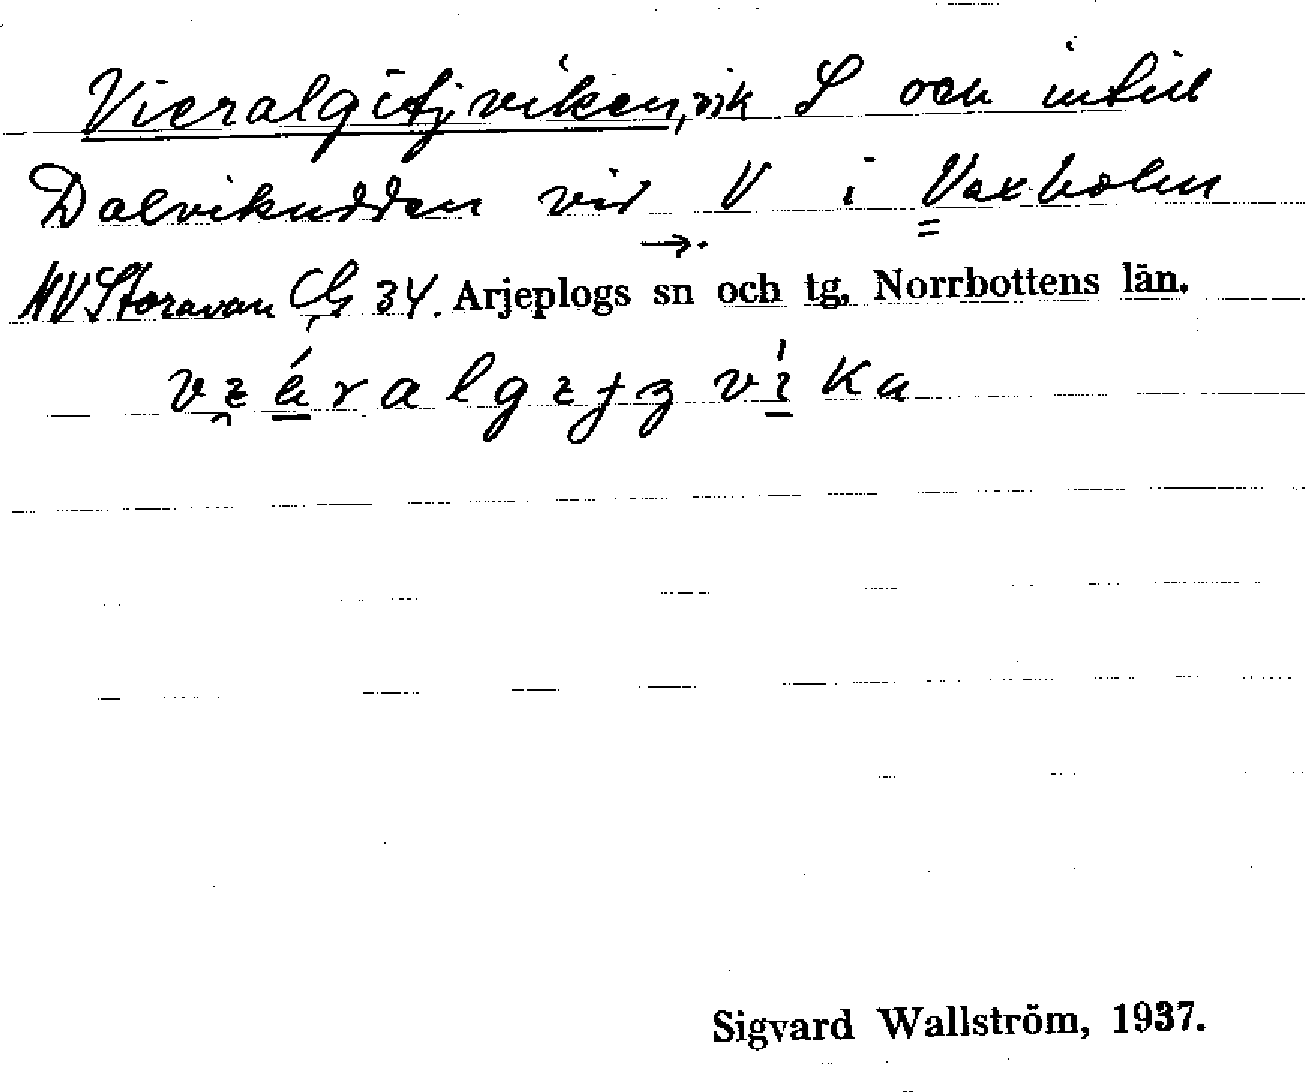 Vieralgitjviken, vik S och intill
Dalvikudden vid V i Vaxholm
NV Storavan 34. Arjeplogs sn och tg, Norrbottens län.
Sigvard Wallström, 1937.